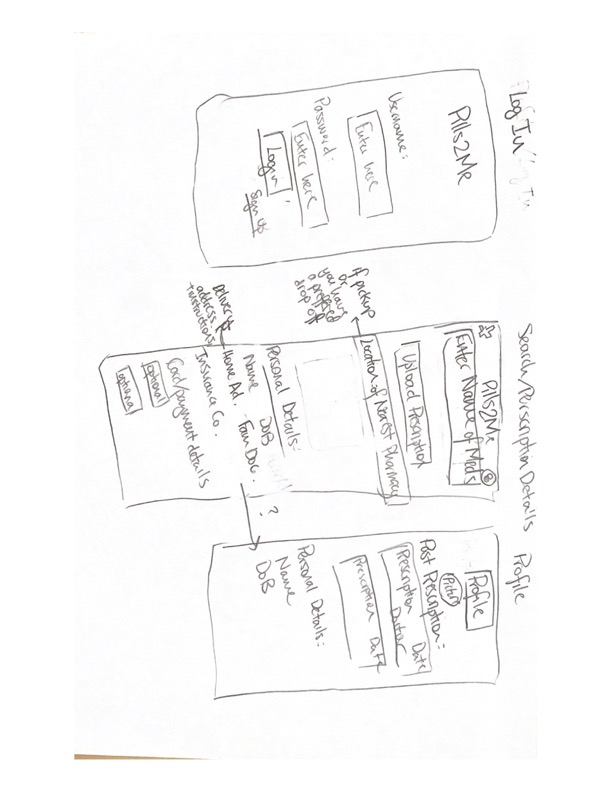 Log In
Pills2Me
Username:
Enter here
Password:
Enter here
Login
Sign Up
Search/Perscription Details
Pills2Me
Enter Name of Meds
Upload Prescription
Location of Nearest Pharmacy
if pickup
or
you have
a preffered
drop off
Personal Details:
Name DOB
Home Ad. Fam Doc.
Insurance Co.
Card/payment details
optional
optional
Delivery
address +
instructions
?
Profile
Profile
Past Prescription:
Prescription Date
Prescription Date
Personal Details:
Name
DOB